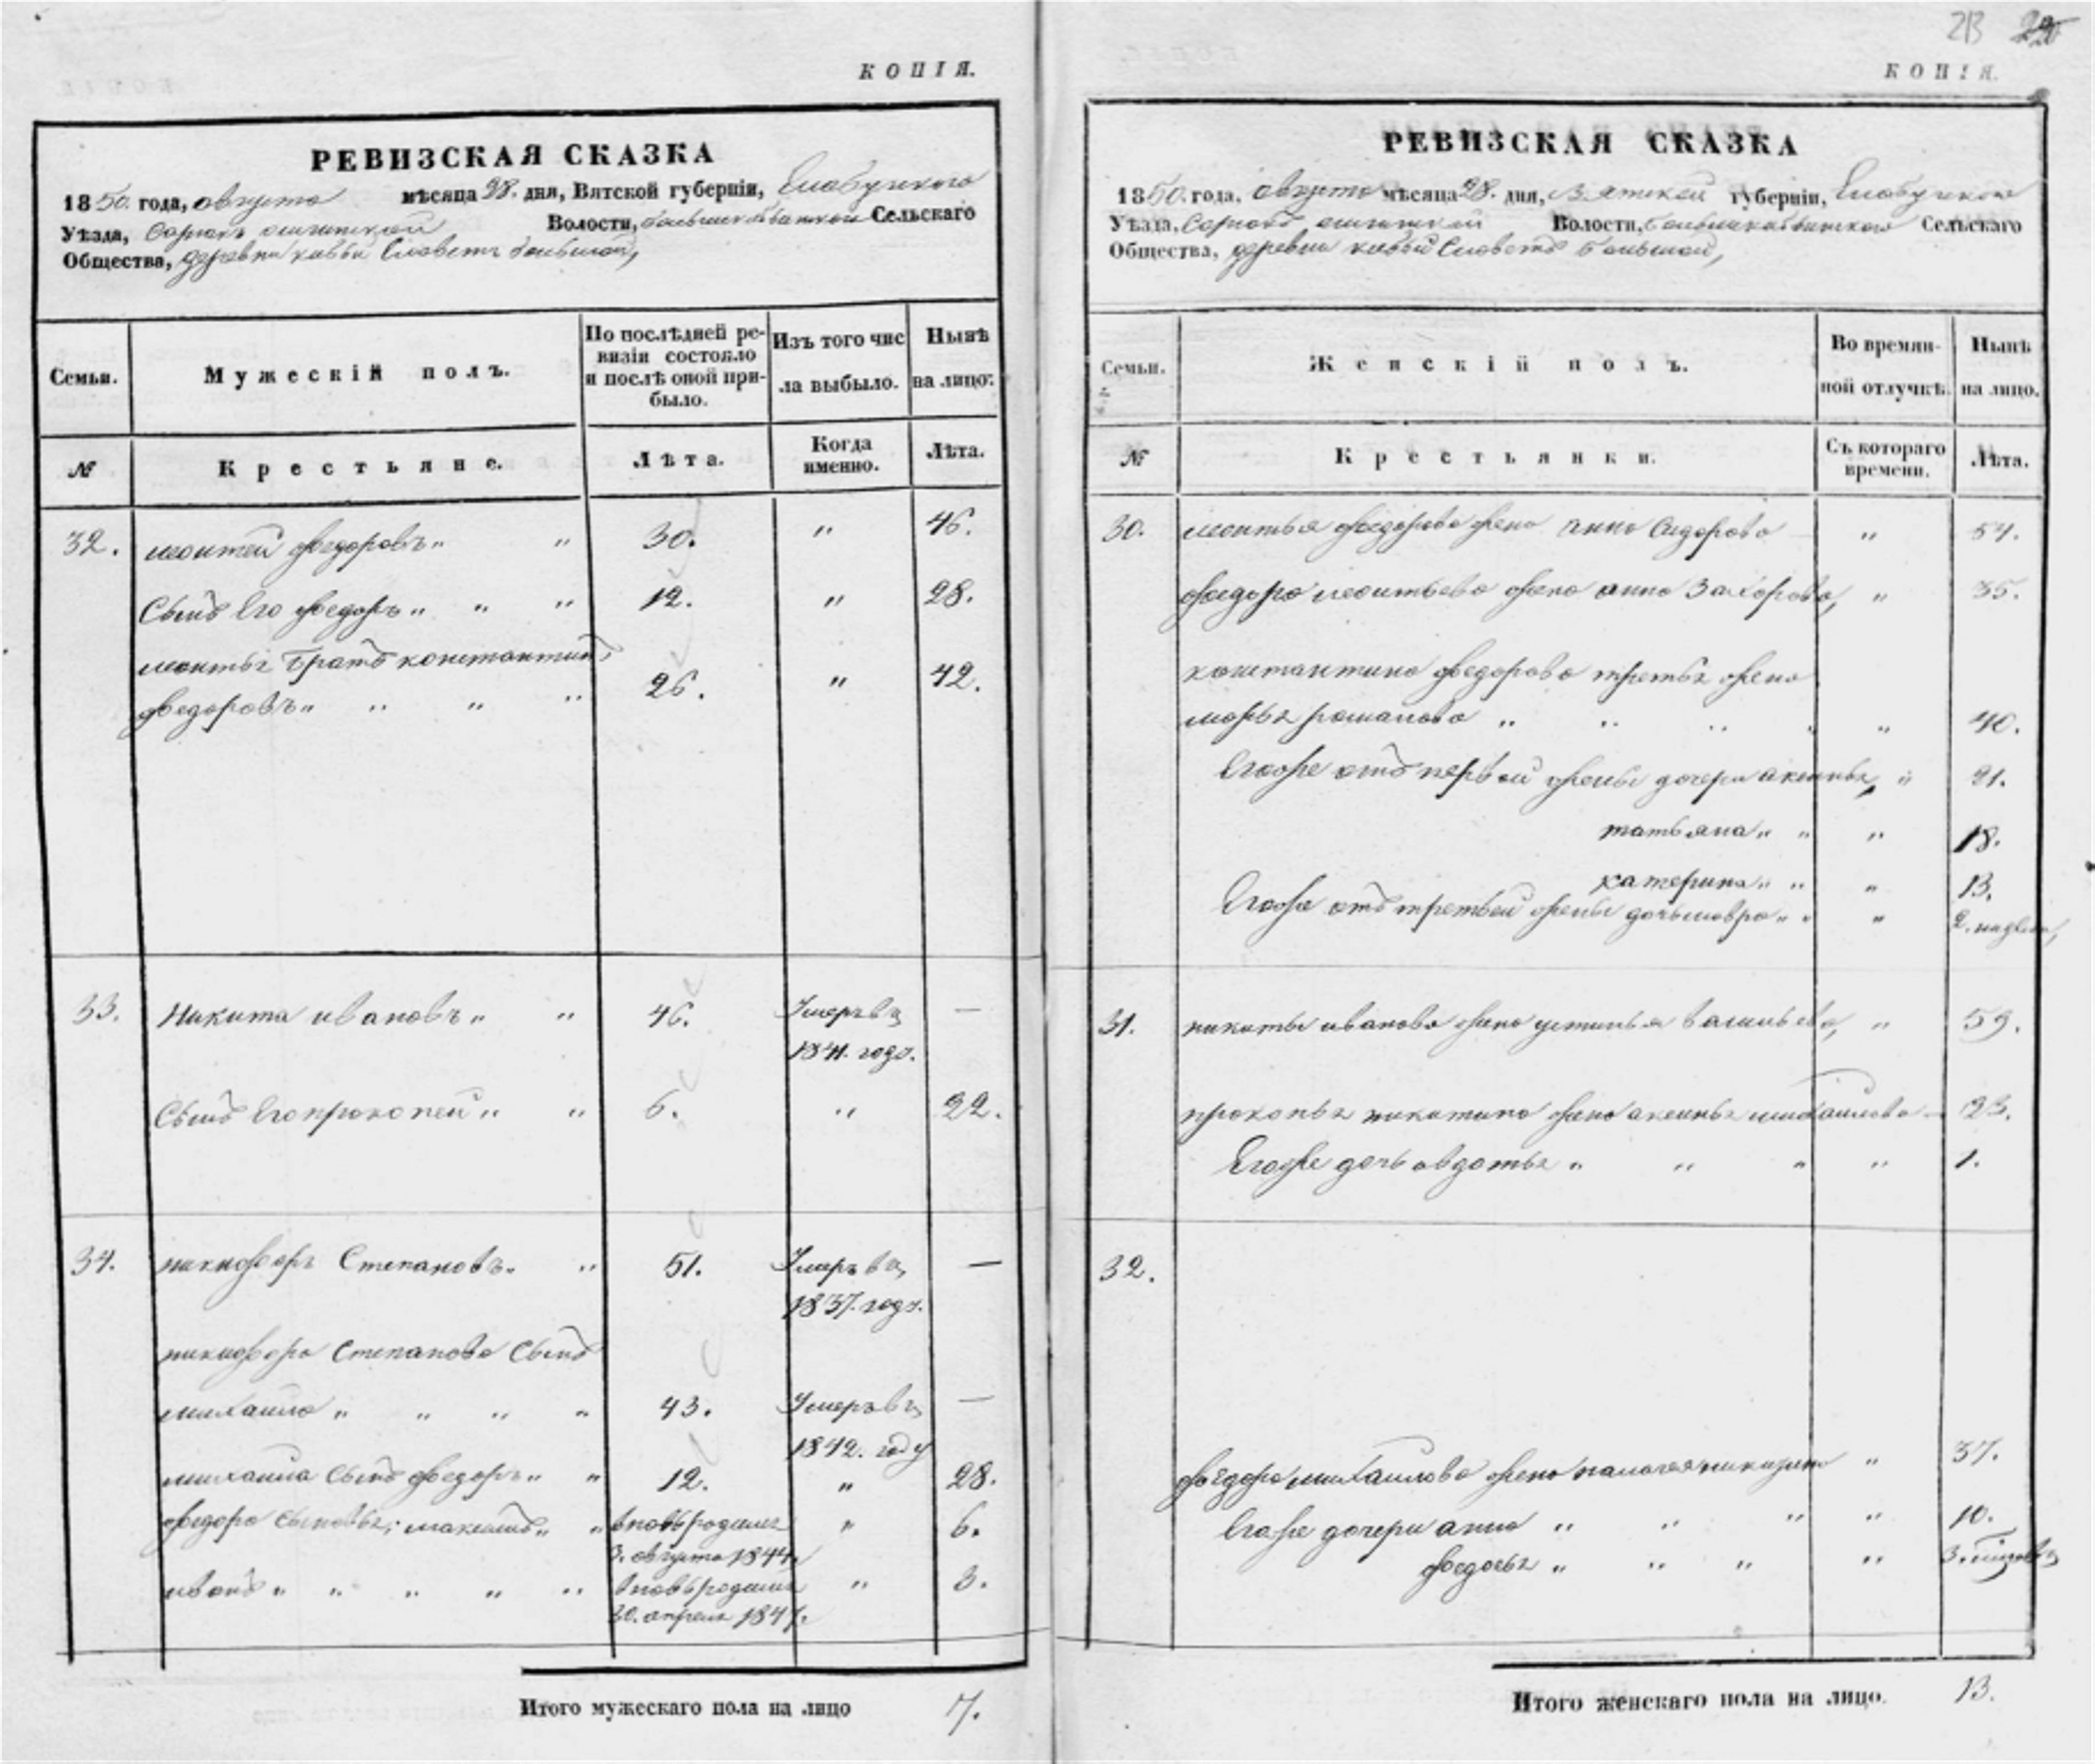 КОПІЯ.
РЕВИЗСКАЯ СКАЗКА
1850. года, августа мѣсяца 28. дня, Вятской губерніи, Елабужскаго
Уѣзда, Волости, Сельскаго
Общества, деревни большой,
Семьи. Мужескій полъ. По послѣдней ре-визіи состояло и послѣ оной при-было. Изъ того чис ла выбыло. Нынѣ на лицо.
№ Крестьяне. Лѣта. Когда именно. Лѣта.
32. леонтей федоровъ „ „ 30. „ 46.
Сынъ Его федоръ „ „ „ 12. „ 28.
леонтья братъ константинъ
федоровъ „ „ „ „ 26. „ 42.
33. Никита ивановъ „ „ 46. Умеръ въ —
1841. году.
Сынъ Его прокопей „ „ 6. „ 22.
34. никифоръ Степановъ „ „ 51. Умеръ въ —
1837. году.
никифора Степанова Сынъ
михаило „ „ „ „ 43. Умеръ въ —
1842. году
михаила Сынъ федоръ „ „ 12. „ 28.
федора Сыновья; максимъ „ „ вновьродился „ 6.
3. августа 1844.
иванъ „ „ „ „ „ вновьродился „ 3.
30. апреля 1847.
Итого мужескаго пола на лицо 7.
213
КОПІЯ.
РЕВИЗСКАЯ СКАЗКА
1850. года, августа мѣсяца 28. дня, Вятской губерніи, Елабужскаго
Уѣзда, Волости, Сельскаго
Общества, деревни большой,
Семьи. Женскій полъ. Во времян-ной отлучкѣ. Нынѣ на лицо.
№ Крестьянки. Съ котораго времени. Лѣта.
30. леонтья федорова жена анна Сидорова „ 57.
федора леонтьева жена анна Захарова, „ 35.
константина федорова третья жена
марья романова „ „ „ „ „ 40.
Егоже отъ первой жены дочери аксинья, „ 21.
татьяна „ „ „ 18.
катерина „ „ „ 13.
Егоже отъ третьей жены дочь мавра „ „ „ 2. недели,
31. никиты иванова жена устинья васильева, „ 59.
прокопья никитина жена аксинья михаилова — 23.
Егоже дочь авдотья „ „ „ „ 1.
32.
федора михаилова жена „ 37.
Егоже дочери анна „ „ „ „ 10.
федосья „ „ „ „ 3.
Итого женскаго пола на лицо. 13.